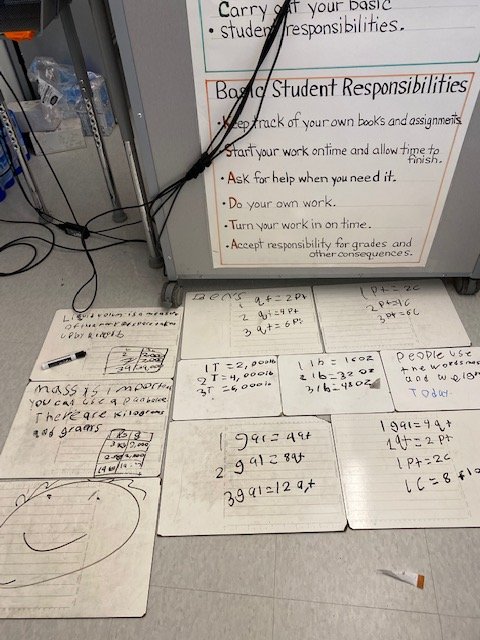 Carry out your basic
• student responsibilities.
Basic Student Responsibilities
• Keep track of your own books and assignments.
• Start your work on time and allow time to
finish.
• Ask for help when you need it.
• Do your own work.
• Turn your work in on time.
• Accept responsibility for grades and
other consequences.
1 qt = 2 Pt
2 qt = 4 Pt
3 qt = 6 Pt
1 Pt = 2C
2 Pt = 4C
3 Pt = 6C
is a
1T = 2,000 lb
2T = 4,000 lb
3T = 6,000 lb
1 lb = 16 oz
2 lb = 32 oz
3 lb = 48 oz
People use
the words mass
and weigh
Today.
Mass is
you can use a
There are kilograms
and grams
kg g
1 gal = 4 qt
2 gal = 8 qt
3 gal = 12 qt
1 gal = 4 qt
1 qt = 2 Pt
1 Pt = 2C
1C = 8 flo